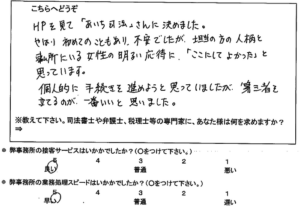 こちらへどうぞ
HPを見て「あいち司法」さんに決めました。
やはり初めてのこともあり、不安でしたが、担当の方の人柄と
事務所にいる女性の明るい応対に、「ここにしてよかった」と
思っています。
個人的に手続きを進めようと思っていましたが、第三者を
立てるのが一番いいと思いました。
※教えて下さい。司法書士や弁護士、税理士等の専門家に、あなた様は何を求めますか？
⇒
● 弊事務所の接客サービスはいかがでしたか？（〇をつけて下さい。）
5 4 3 2 1
良い 普通 悪い
● 弊事務所の業務処理スピードはいかがでしたか？（〇をつけて下さい。）
5 4 3 2 1
早い 普通 遅い